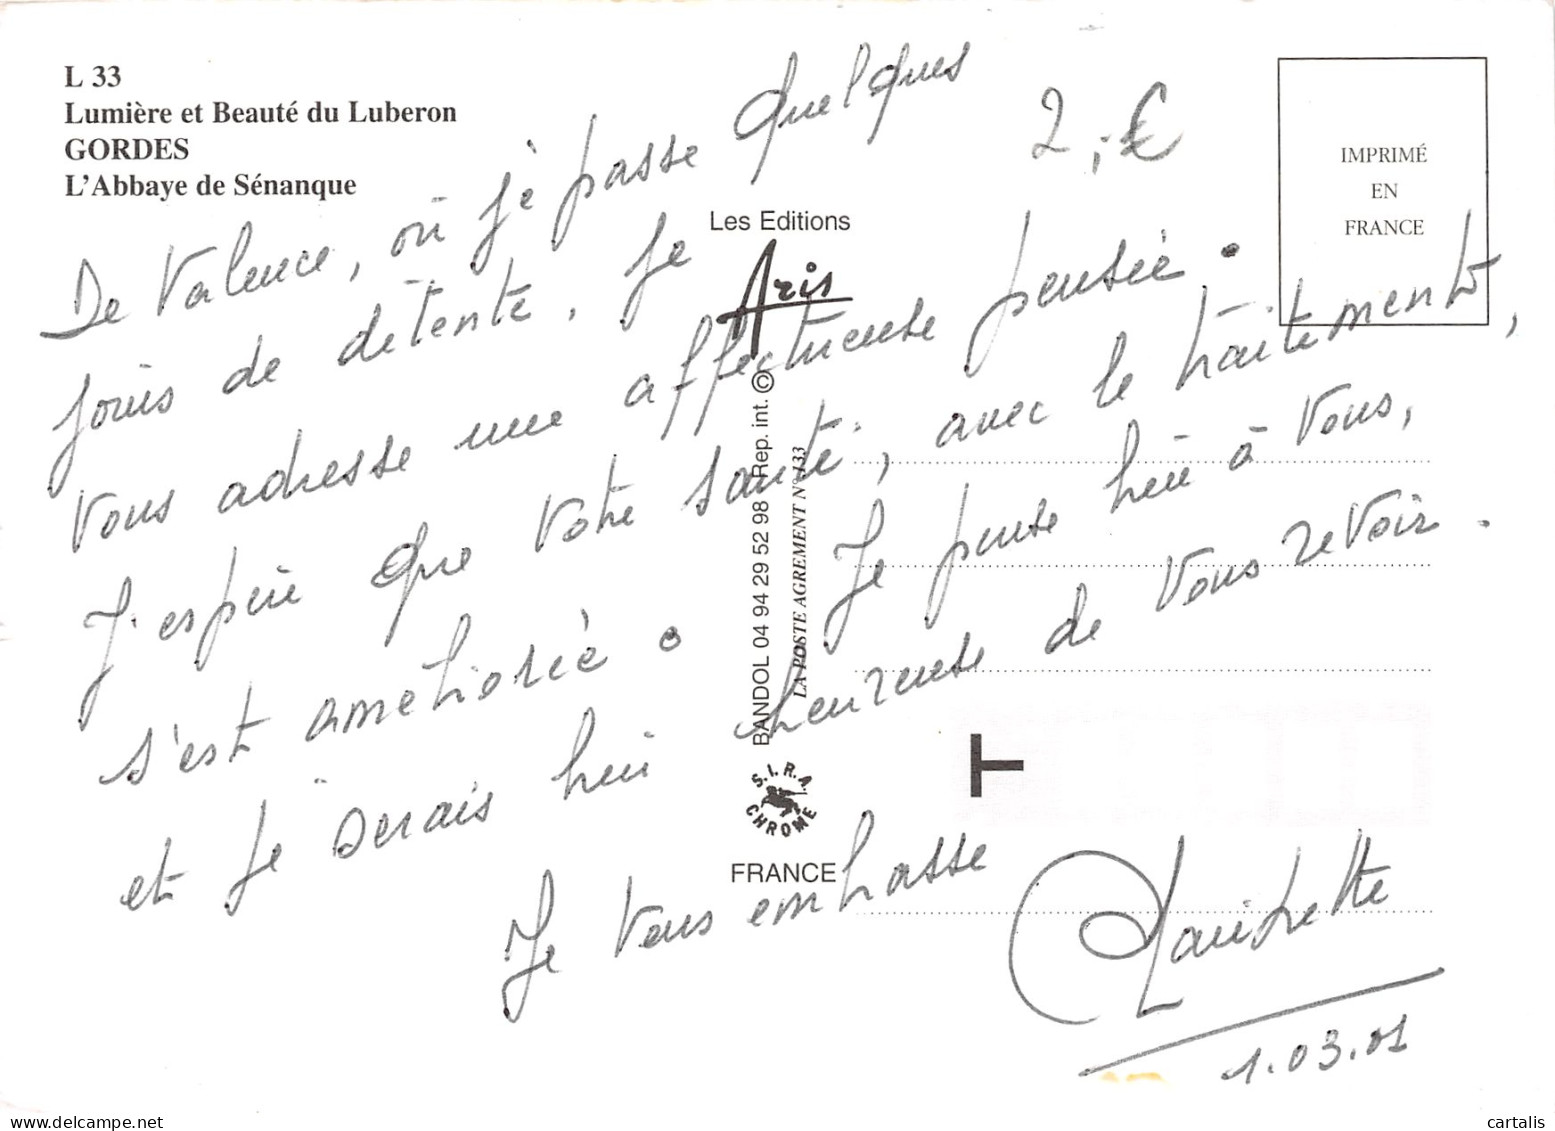 L 33
Lumière et Beauté du Luberon
GORDES
L'Abbaye de Sénanque
2,-€
IMPRIMÉ
EN
FRANCE
De Valence, où je passe quelques
jours de détente, je
vous adresse une affectueuse pensée.
J'espère que votre santé, avec le traitement,
s'est améliorée. Je pense à vous,
et je serais heureuse de vous revoir.
Je vous embrasse
1.03.01
Les Editions
Aris
BANDOL 04 94 29 52 98 Rep. int. ©
LA POSTE AGREMENT N° 133
S.I.R.A.
CHROME
FRANCE
T
cartalis